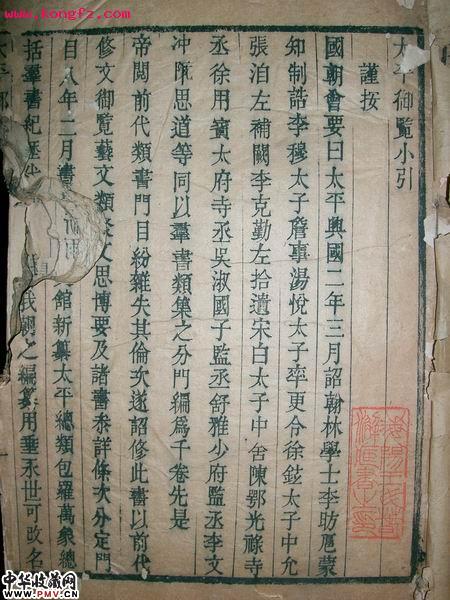 www.kongfz.com
太平御覽小引
謹按
國朝會要曰太平興國二年三月詔翰林學士李昉扈蒙
知制誥李穆太子詹事湯悅太子率更令徐鉉太子中允
張洎左補闕李克勤左拾遺宋白太子中舍陳鄂光祿寺
丞徐用賓太府寺丞吳淑國子監丞舒雅少府監丞李文
冲阮思道等同以羣書類集之分門編爲千卷先是
帝閱前代類書門目紛雜失其倫次遂詔修此書以前代
修文御覽藝文類文思博要及諸書叅詳條次分定門
目八年二月書館新纂太平總類包羅萬象總
括羣書紀歷我朝之編纂用垂永世可改名
中华收藏网
WWW.PMV.CN